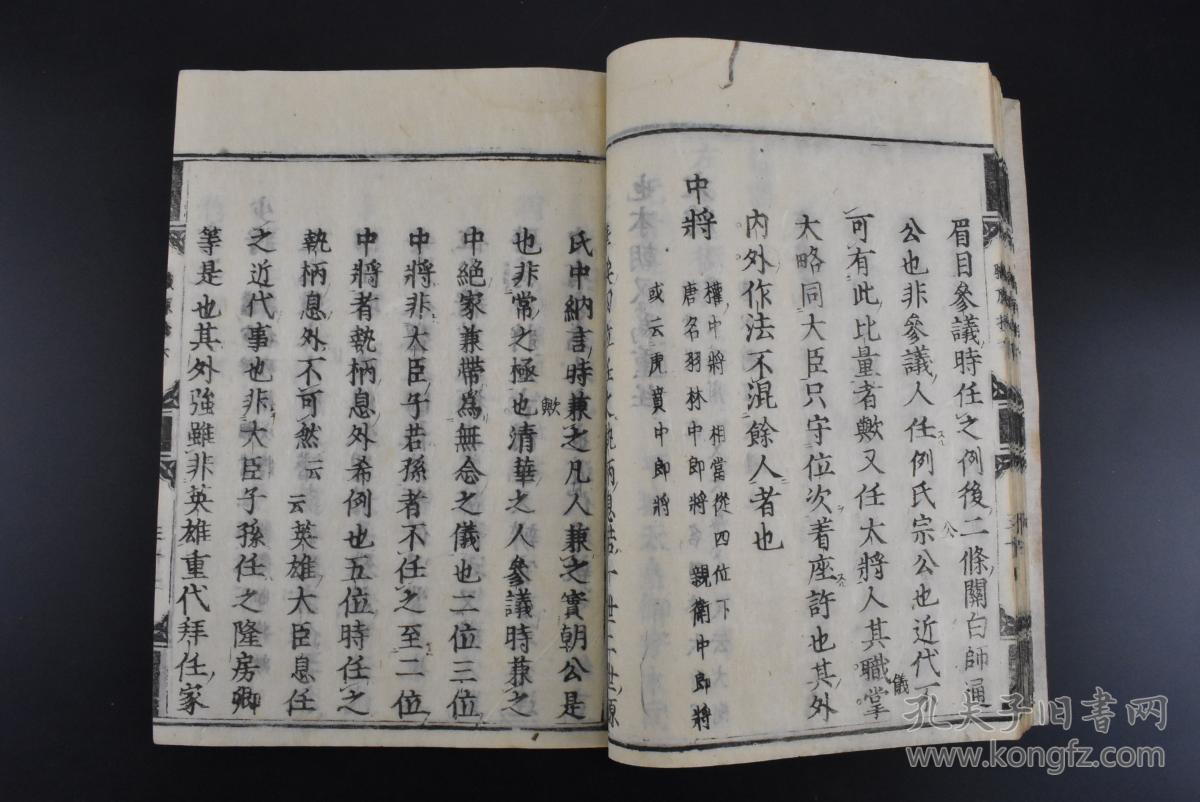 眉目參議時任之例後二條關白師通
公也非參議人任例氏宗公也近代
可有此比量者歟又任大將人其職掌
儀
大略同大臣只守位次着座許也其外
内外作法不混餘人者也
中將
權中將 相當從四位下
唐名羽林中郎將 親衛中郎將
或云虎賁中郎將
氏中納言時兼之凡人兼之實朝公是
歟
也非常之極也清華之人參議時兼之
中絶家兼帶爲無念之儀也二位三位
中將非大臣子若孫者不任之至二位
中將者執柄息外希例也五位時任之
執柄息外不可然云云英雄大臣息任
之近代事也非大臣子孫任之隆房卿
等是也其外強雖非英雄重代拜任家
孔夫子旧书网
www.kongfz.com